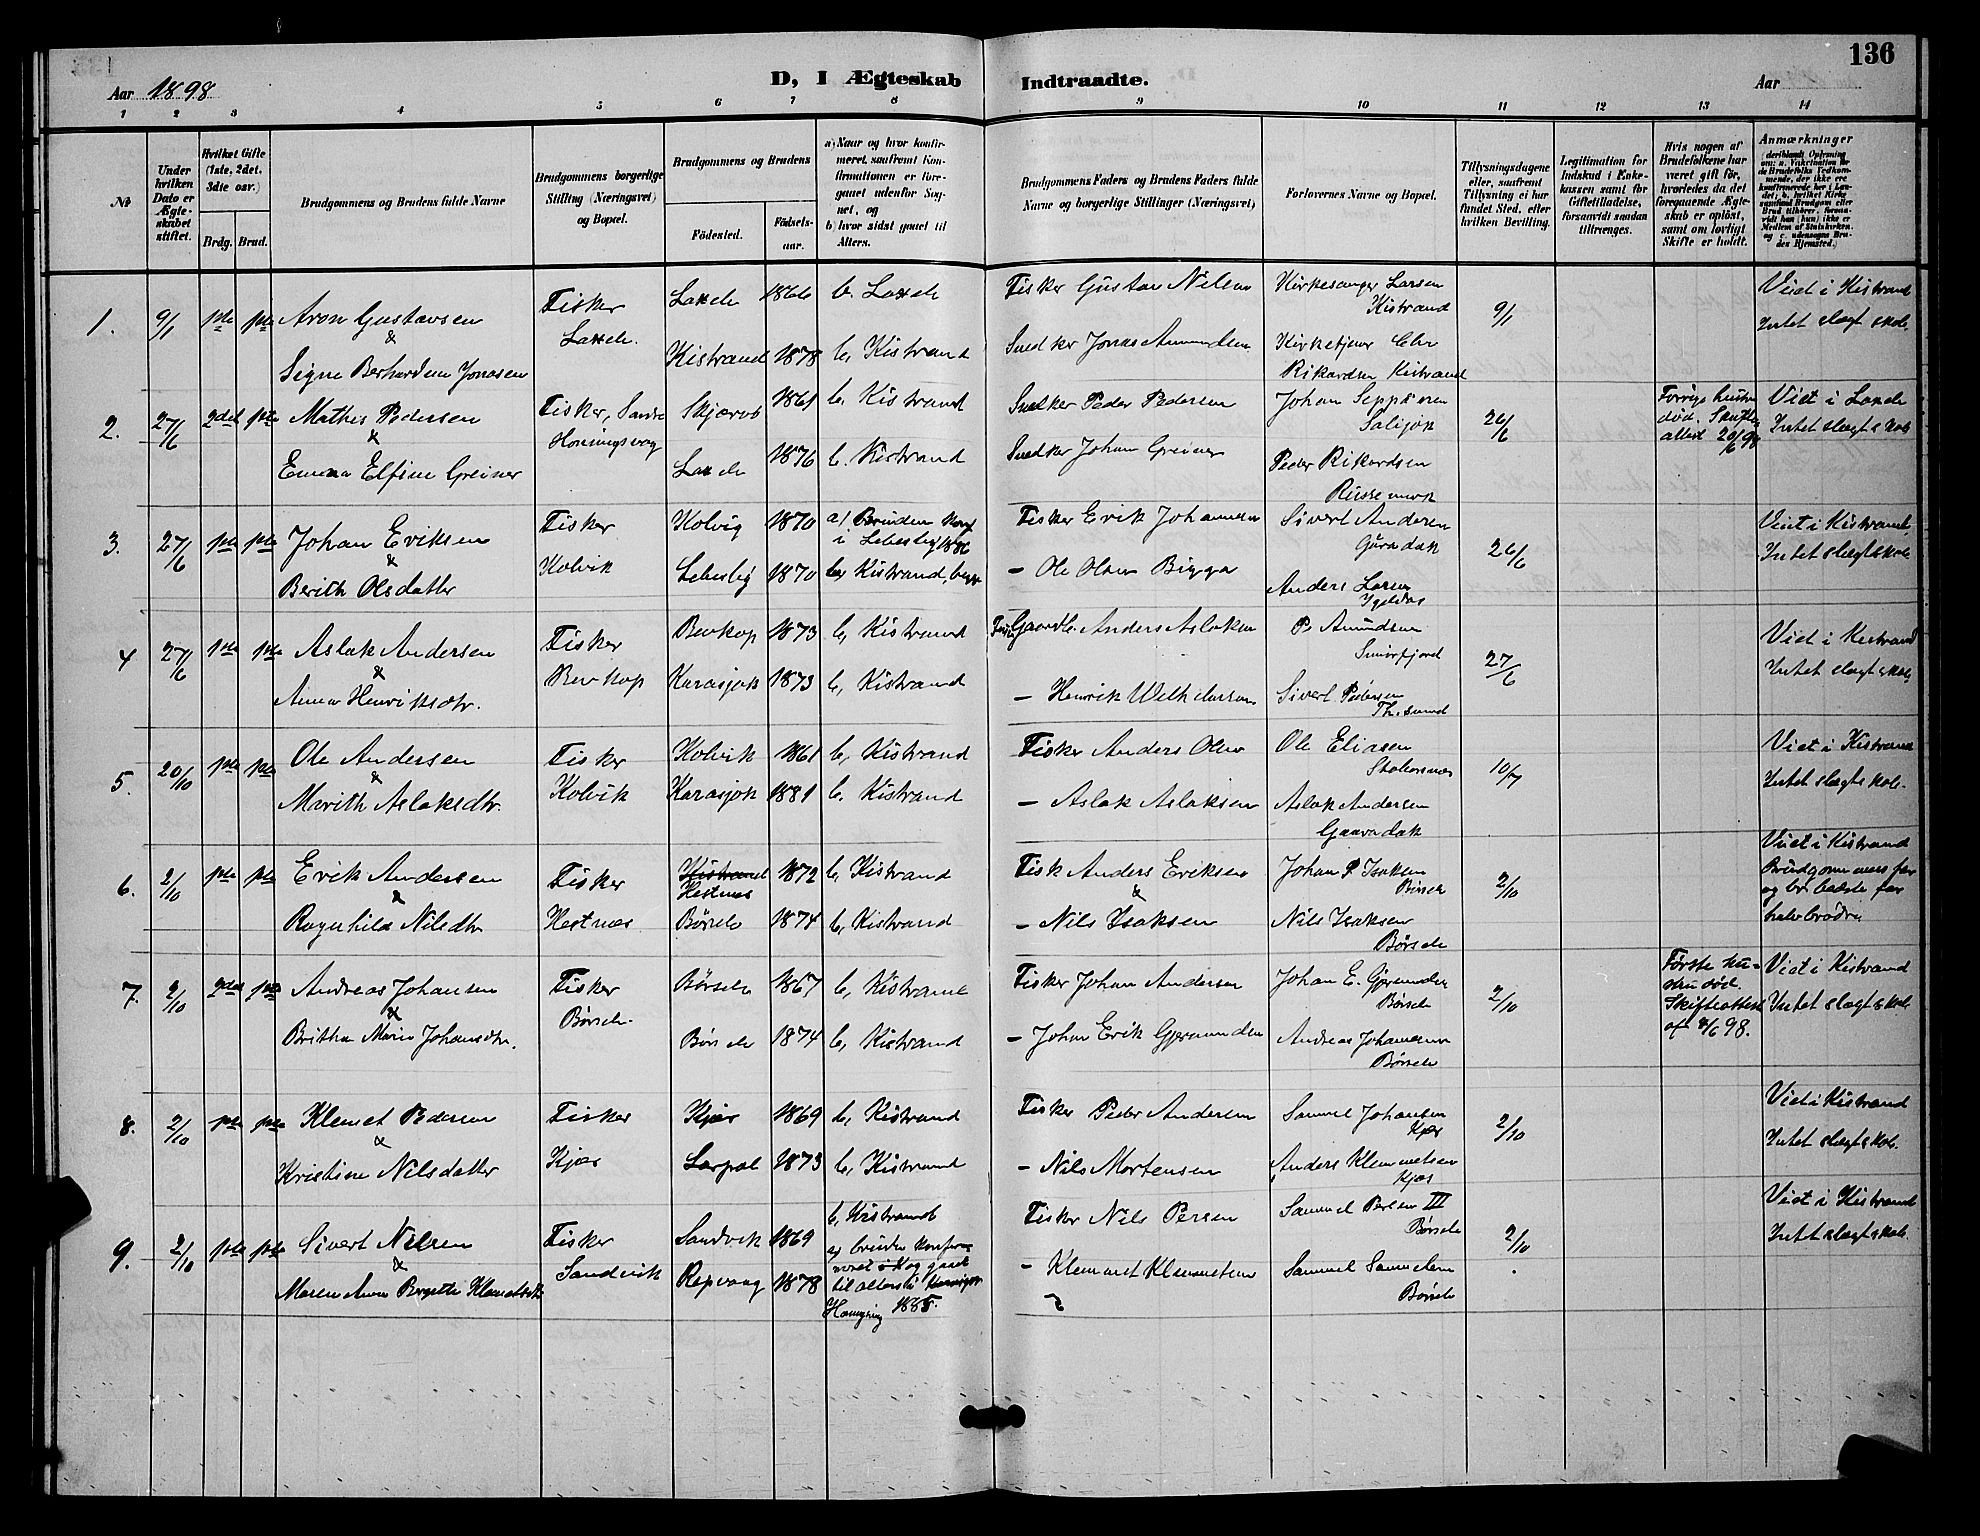 136
D, I Ægteskab Indtraadte.
Aar 1898 Aar
1 2 3 4 5 6 7 8 9 10 11 12 13 14
Nr.
Under hvilken Dato er Ægteskabet stiftet.
Hvilket Gifte (1ste, 2det, 3die osv.)
Brdg. Brud.
Brudgommens og Brudens fulde Navne
Brudgommens borgerlige Stilling (Næringsvei) og Bopæl.
Brudgommens og Brudens
Fødested. Fødselsaar.
a) Naar og hvor konfirmeret, saafremt Konfirmationen er foregaaet udenfor Sognet, og
b) hvor sidst gaaet til Alters.
Brudgommens Faders og Brudens Faders fulde Navne og borgerlige Stillinger (Næringsvei)
Forlovernes Navne og Bopæl.
Tillysningsdagene eller, saafremt Tillysning ei har fundet Sted, efter hvilken Bevilling.
Legitimation for Indskud i Enkekassen samt for Giftetilladelse, forsaavidt saadan tiltrænges.
Hvis nogen af Brudefolkene har været gift før, hvorledes da det foregaaende Ægteskab er opløst, samt om lovligt Skifte er holdt.
Anmærkninger
1. 9/1 1ste 1ste Aron Gustavsen Fisker Laxelv 1866 b. Laxelv Fisker Gustav Nilsen Kirkesanger Larsen Kistrand 9/1 Viet i Kistrand
& Laxelv. Intet slægtskab.
Signe Berhardine Jonasen Kistrand 1878 b, Kistrand Snedker Jonas Amundsen Kirketjener Chr Rikardsen Kistrand
2. 27/6 2det 1ste Mathis Pedersen Fisker, Honningsvaag Skjervø 1861 b. Kistrand Snedker Peder Pedersen Johan Seppänen 26/6 Forrige hustru død. 20/6 98 Viet i Laxelv
& Intet slægtskab
Emma Elfine Greiner Laxelv 1876 b. Kistrand Snedker Johan Greiner Peder Rikardsen
3. 27/6 1ste 1ste Johan Eriksen Fisker Kolvig 1870 a) Bruden konf i Lebesby 1886 Fisker Erik Johannesen Sivert Andersen 26/6 Viet i Kistrand,
& Kolvik Intet slægtskab
Berith Olsdatter Lebesby 1870 b) Kistrand, begge – Ole Olsen Bigga Anders Larsen
4 27/6 1ste 1ste Aslak Andersen Fisker Bevkop 1873 b, Kistrand Gaardb. Anders Aslaksen P. Amundsen Smørfjord 27/6 Viet i Kistrand
& Bevkop Intet slægtskab
Anna Henriksdtr. Karasjok 1873 b, Kistrand – Henrik Wilhelmsen Sivert Pedersen
5. 20/10 1ste 1ste Ole Andersen Fisker Kolvik 1861 b, Kistrand Fisker Anders Olsen Ole Eliasen 10/7 Viet i Kistrand
& Kolvik Intet slægtskab.
Marith Aslaksdtr. Karasjok 1881 b. Kistrand – Aslak Aslaksen Aslak Andersen Gaaradak
6. 2/10 1ste 1ste Erik Andersen Fisker Kistrand Hestnes 1872 b, Kistrand Fisk Anders Eriksen Johan P Isaksen Børselv 2/10 Viet i Kistrand
& Hestnes Brudgommens far og br. bedstefar halvbrødre
Ragnhild Nilsdtr Børselv 1874 b, Kistrand – Nils Isaksen Nils Isaksen Børselv
7. 2/10 2det 1ste Andreas Johansen Fisker Børselv 1867 b, Kistrand Fisker Johan Andersen Johan E. Gjermundsen Børselv 2/10 Første hustru død. Skifteattest af 4/6 98. Viet i Kistrand
& Børselv Intet slægtskab
Britha Marie Johansdtr. Børselv 1874 b, Kistrand – Johan Erik Gjermundsen Andreas Johannesen Børselv
8. 2/10 1ste 1ste Klemet Pedersen Fisker Kjæs 1869 b, Kistrand Fisker Peder Andersen Samuel Johansen Kjæs 2/10 Viet i Kistrand
& Kjæs Intet slægtskab.
Kristine Nilsdatter Larpol 1873 b, Kistrand – Nils Mortensen Anders Klemmetsen Kjæs
9. 2/10 1ste 1ste Sivert Nilsen Fisker Sandvik 1869 b, Kistrand Fisker Nils Persen Samuel Persen III Børselv 2/10 Viet i Kistrand
& Sandvik Intet slægtskab.
Maren Anna Bergette Klemetsdtr Repvaag 1878 – Klemmet Klemmetsen Samuel Samuelsen Børselv